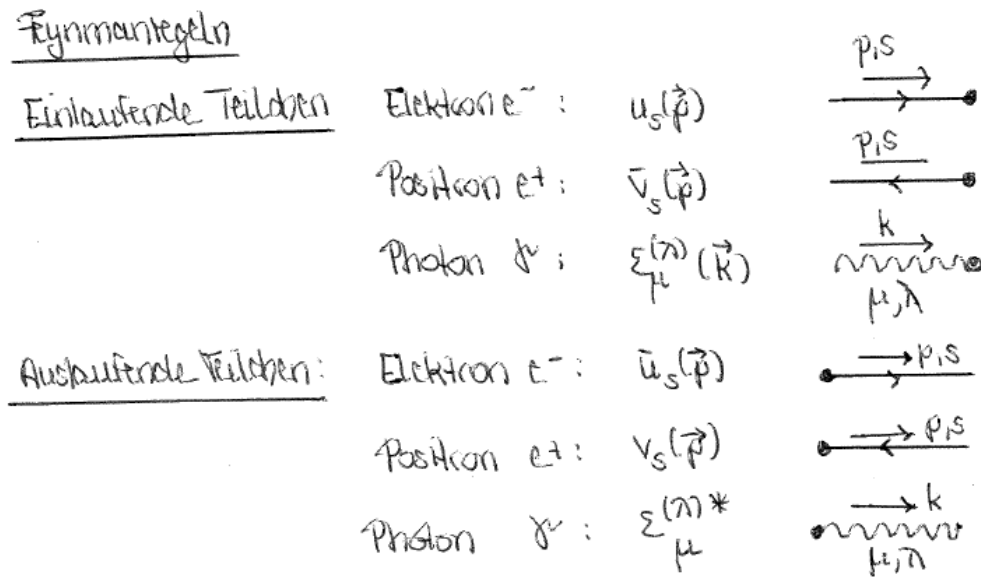 Feynmanregeln
Einlaufende Teilchen Elektron e⁻ : u_s(p⃗) p,s
Positron e⁺ : v̄_s(p⃗) p,s
Photon γ : ε_μ^(λ) (k⃗) k μ,λ
Auslaufende Teilchen: Elektron e⁻ : ū_s(p⃗) p,s
Positron e⁺ : v_s(p⃗) p,s
Photon γ : ε_μ^(λ)* k μ,λ